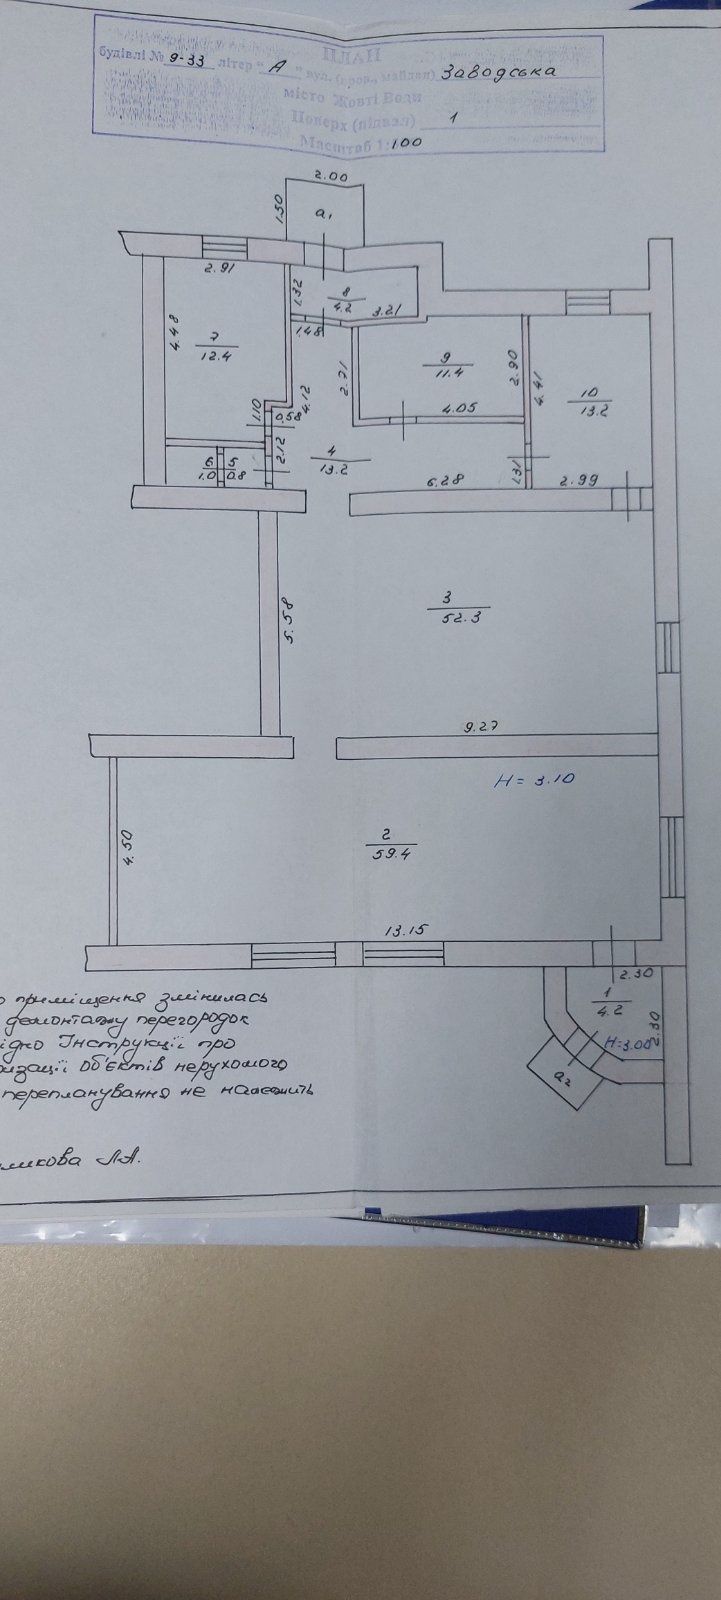 ПЛАН
будівлі № 9-33 літер "А" вул. (пров., майдан) Заводська
місто Жовті Води
Поверх (підвал) 1
Масштаб 1:100
2.00
1.50
а₁
2.91
1.32
8
4.2
3.21
4.48
7
12.4
1.48
2.71
9
11.4
2.90
4.41
10
13.2
4.12
1.10
0.58
4.05
2.12
4
13.2
6
1.0
5
0.8
6.28
1.31
2.99
5.58
3
52.3
9.27
H = 3.10
4.50
2
59.4
13.15
2.30
1
4.2
H=3.00
2.30
а₂
приміщення змінилась
демонтажу перегородок
Інструкції про
об'єктів нерухомого
перепланування не належить
Л.А.